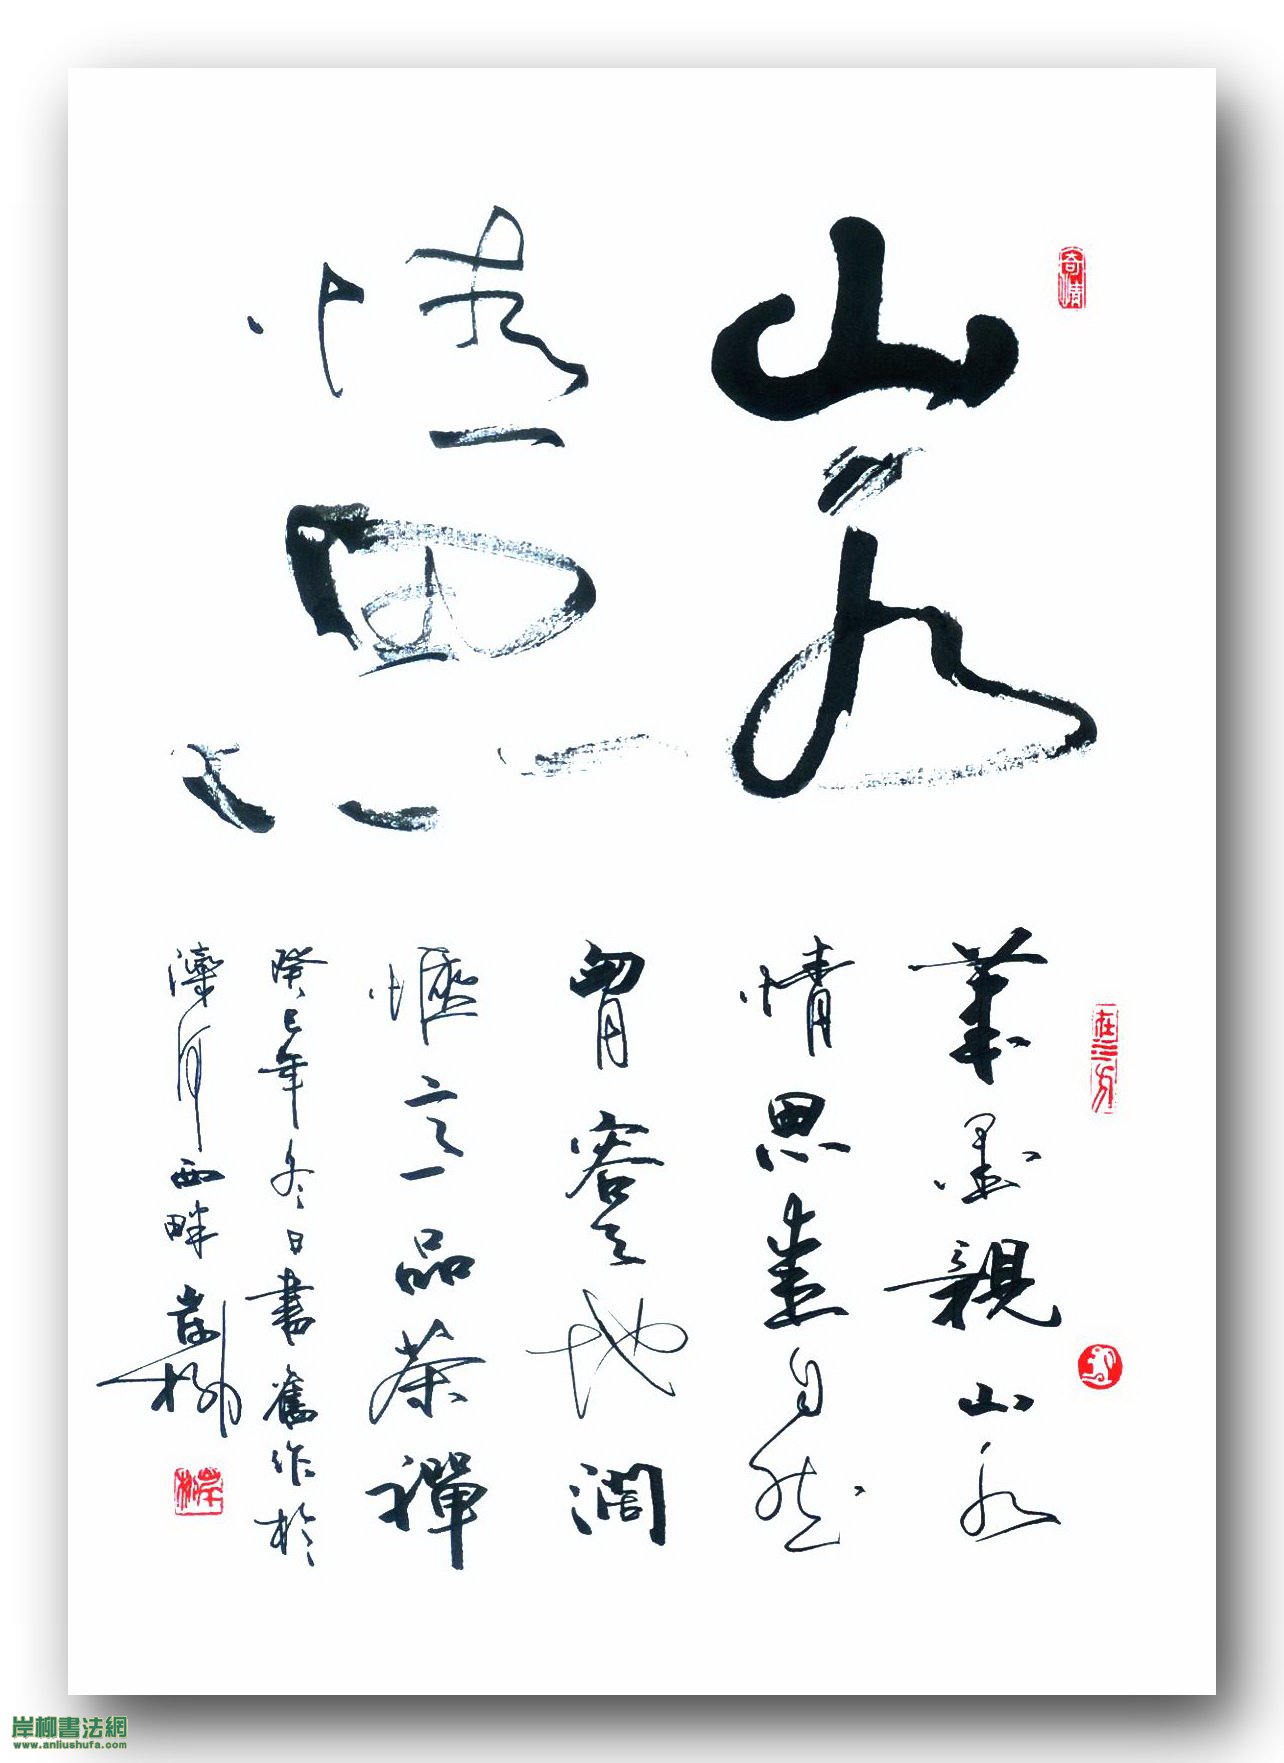 山水
情思
筆墨親山水
情思畫自然
胷容天地濶
惬意品茶禪
癸巳年冬日書舊作於
灤河西畔岸柳
奇情
岸柳
岸柳書法網
www.anliushufa.com